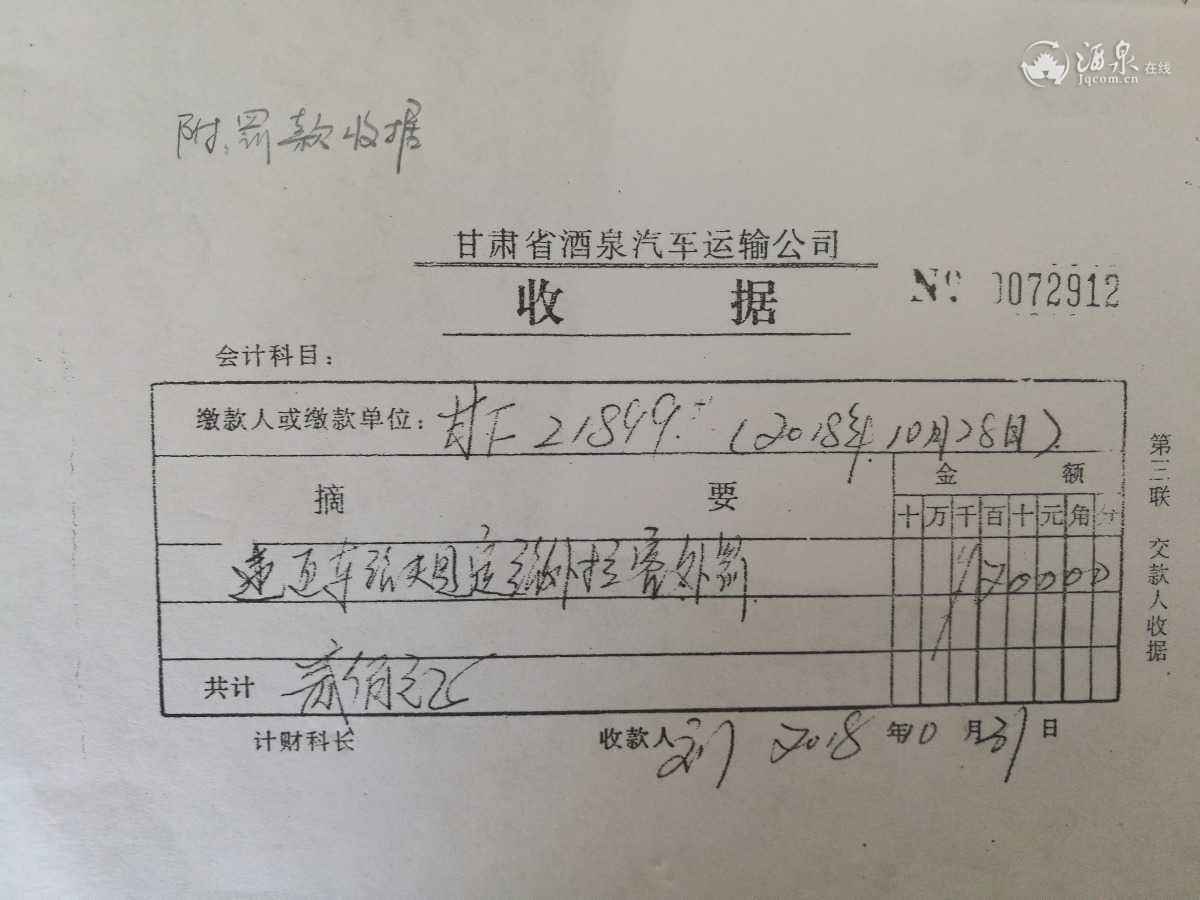 酒泉在线
Jqcom.cn
附:罚款收据
甘肃省酒泉汽车运输公司
收 据
№ 0072912
会计科目:
缴款人或缴款单位: 甘F21849 (2018年10月28日)
摘 要
金 额
十万千百十元角分
定 外 客处罚
¥20000
共计 贰佰元
计财科长 收款人 刘 2018年10月31日
第三联 交款人收据